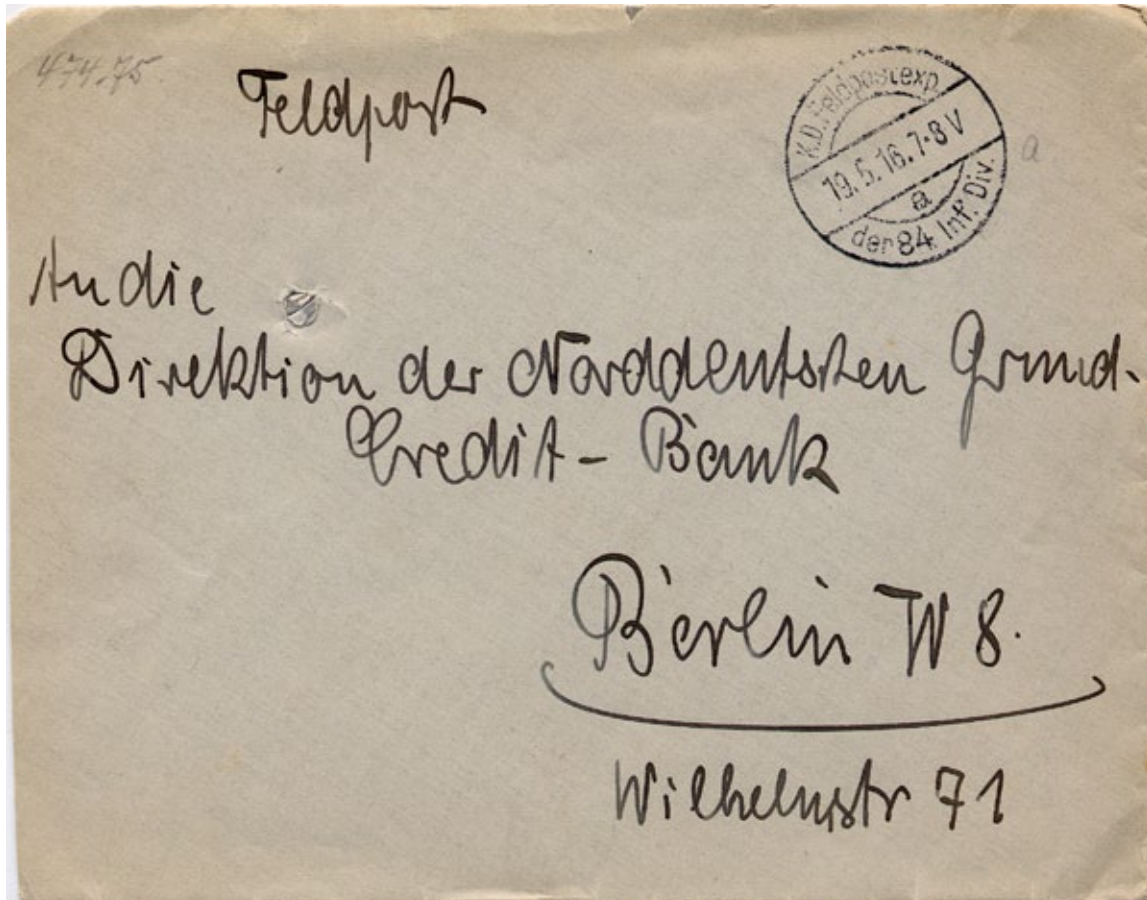 474.75
Feldpost
K.D. Feldpostexp.
19.5.16.7-8V
a
der 84. Inf. Div.
a
An die
Direktion der Norddeutschen Grund-
Credit-Bank
Berlin W 8.
Wilhelmstr 71